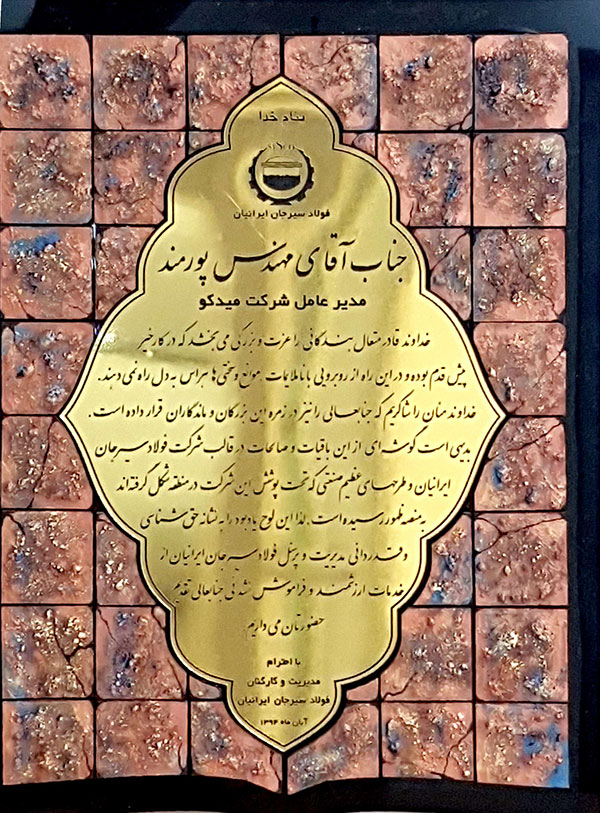 بنام خدا
SISCO
فولاد سیرجان ایرانیان
جناب آقای مهندس پورمند
مدیر عامل شرکت میدکو
خداوند قادر متعال بندگانی را عزت و بزرگی می بخشد که در کار خیر
پیش قدم بوده و در این راه از رویارویی با ناملایمات، موانع و سختی ها هراس به دل راه نمی دهند.
خداوند منان را شاکریم که جنابعالی را نیز در زمره این بزرگان و ماندگاران قرار داده است.
بدیهی است گوشه ای از این باقیات و صالحات در قالب شرکت فولاد سیرجان
ایرانیان و طرحهای عظیم صنعتی که تحت پوشش این شرکت در منطقه شکل گرفته اند
به منصه ظهور رسیده است. لذا این لوح یادبود را به نشانه حق شناسی
و قدردانی مدیریت و پرسنل فولاد سیرجان ایرانیان از
خدمات ارزشمند و فراموش نشدنی جنابعالی تقدیم
حضورتان می داریم.
با احترام
مدیریت و کارکنان
فولاد سیرجان ایرانیان
آبان ماه ۱۳۹۴